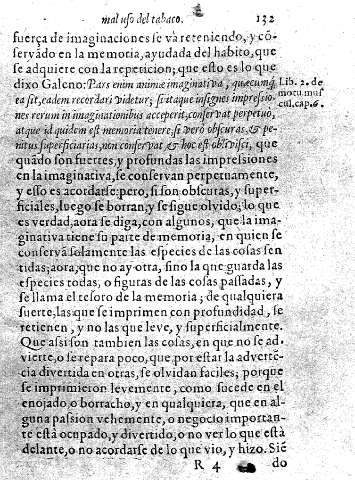 mal uso del tabaco. 132
fuerça de imaginaciones se va reteniendo, y cõ
servãdo en la memoria, ayudada del habito, que
se adquiere con la repeticion; que esto es lo que
dixo Galeno: Pars enim animæ imaginativa, quæcumq́
ea sit, eadem recordari videtur; si itaque insignes impressio
nes rerum in imaginationibus acceperit, conservat perpetuo,
atque id quidem est memoria tenere; si verò obscuras, & pe
nitus superficiarias, non conservat & hoc est oblivisci, que
quãdo son fuertes, y profundas las impresiones
en la imaginativa, se conservan perpetuamente,
y esso es acordarse: pero, si son obscuras, y super-
ficiales, luego se borran; y se sigue olvido; lo que
es verdad, aora se diga, con algunos, que la ima-
ginativa tiene su parte de memoria, en quien se
conservã solamente las especies de las cosas sen
tidas; aora, que no ay otra, sino la que guarda las
especies todas, o figuras de las cosas passadas, y
se llama el tesoro de la memoria; de qualquiera
suerte, las que se imprimen con profundidad, se
retienen, y no las que leve, y superficialmente.
Que assi son tambien las cosas, en que no se ad-
vierte, o se repara poco, que por estar la advertē-
cia divertida en otras, se olvidan faciles; porque
se imprimieron levemente, como sucede en el
enojado, o borracho, y en qualquiera, que en al-
guna passion vehemente, o negocio importan-
te está ocupado, y divertido, o no ver lo que está
delante, o no acordarse de lo que vio, y hizo. Siē
R 4 do
Lib. 2. de
motu mus
cul. cap. 6.